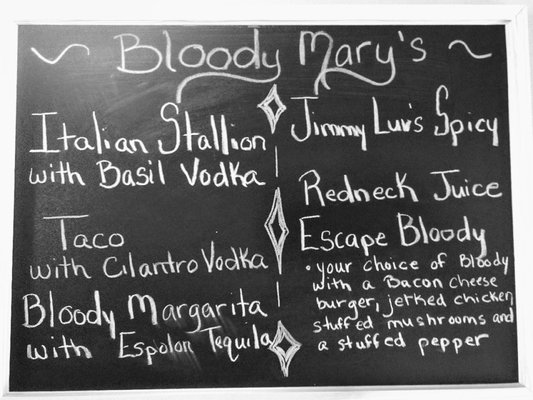 ~ Bloody Mary's ~
Italian Stallion
with Basil Vodka
Taco
with Cilantro Vodka
Bloody Margarita
with Espolon Tequila
Jimmy Luv's Spicy
Redneck Juice
Escape Bloody
• your choice of Bloody
with a Bacon cheese
burger, jerked chicken
stuffed mushrooms and
a stuffed pepper